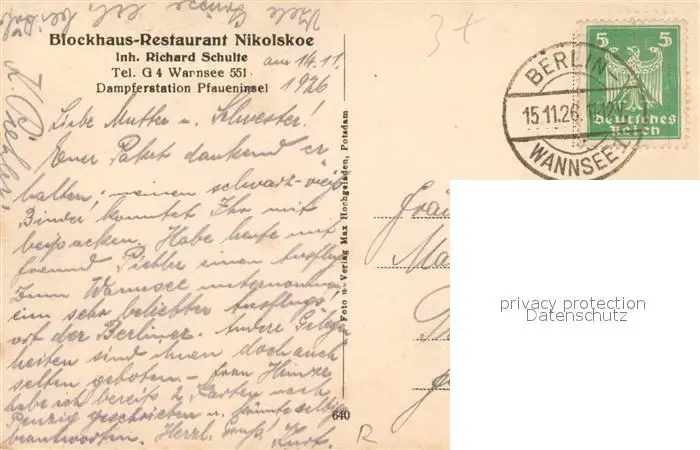 Blockhaus-Restaurant Nikolskoe
Inh. Richard Schulte
Tel. G 4 Wannsee 551
Dampferstation Pfaueninsel
am 14.11.
1926
Liebe Mutter u. Schwester!
Euer Paket dankend er
halten; meinen schwarz-weiß
Binder konntet Ihr mit
beipacken. Habe heute mit
Freund Pichler einen Ausflug
zum Wannsee unternommen,
ein sehr beliebter Ausflugs
ort der Berliner. Andere Gelegen
heiten sind ihnen doch auch
selten geboten – Frau Heinze
habe ich bereits 2 Karten nach
Penzig geschrieben u. könnte selbige
beantworten. Herzl. Gruß! Kurt.
Foto u. Verlag Max Hochgeladen, Potsdam
640
3 x
BERLIN-
15.11.26. 11-12V
WANNSEE 1
5 5
Deutsches
Reich
R
privacy protection
Datenschutz